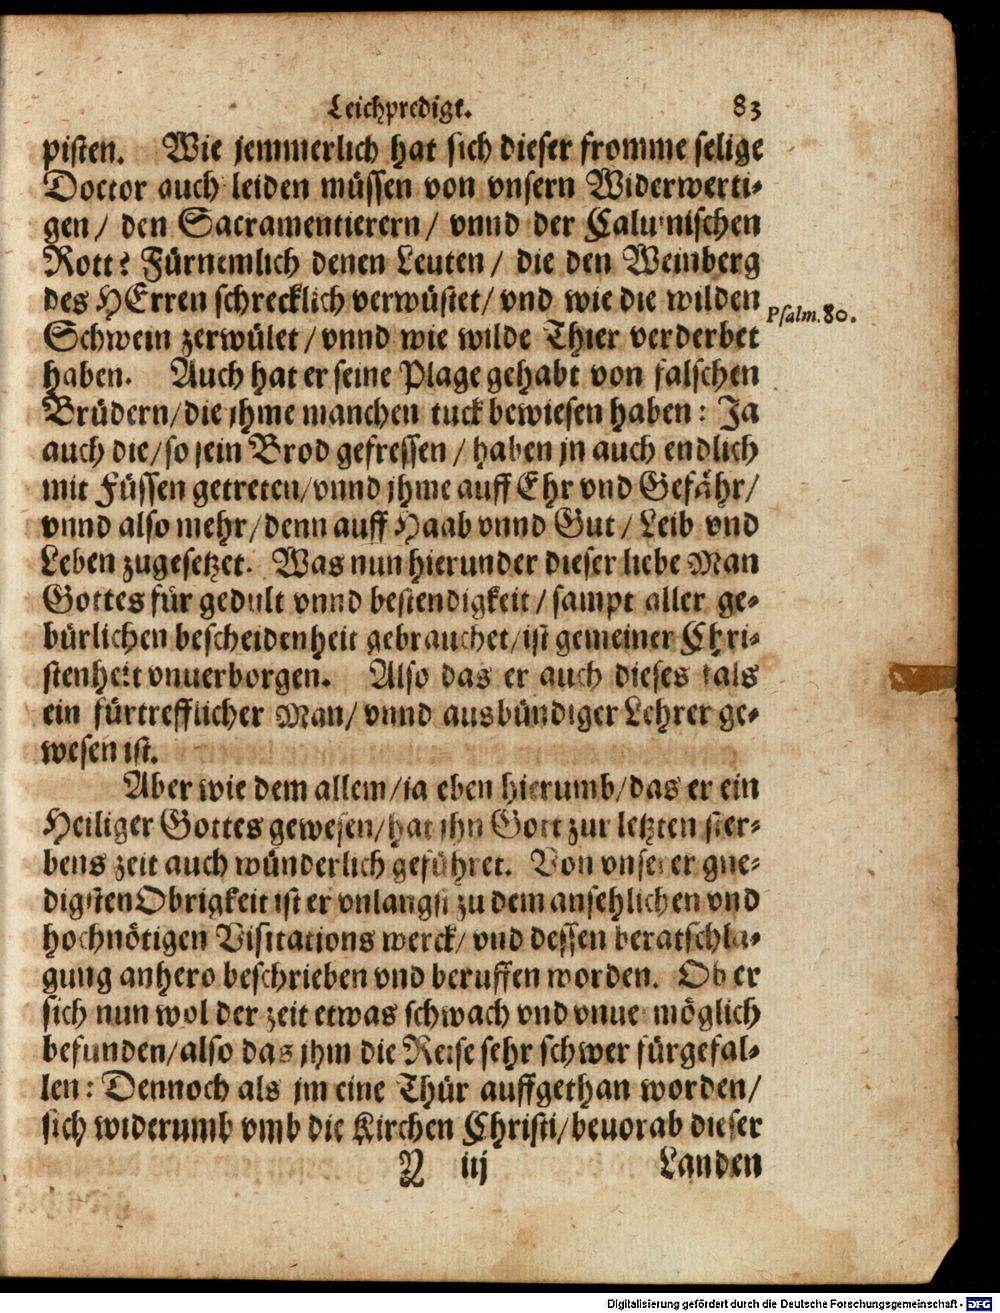 Leichpredigt. 83
pisten. Wie jemmerlich hat sich dieser fromme selige
Doctor auch leiden müssen von vnsern Widerwerti-
gen/ den Sacramentierern/ vnnd der Caluinischen
Rott? Fürnemlich denen Leuten/ die den Weinberg
des HErren schrecklich verwüstet/ vnd wie die wilden
Psalm. 80.
Schwein zerwület/ vnnd wie wilde Thier verderbet
haben. Auch hat er seine Plage gehabt von falschen
Brüdern/ die jhme manchen tuck bewiesen haben: Ja
auch die/ so sein Brod gefressen/ haben jn auch endlich
mit Füssen getreten/ vnnd jhme auff Ehr vnd Gefähr/
vnnd also mehr/ denn auff Haab vnnd Gut/ Leib vnd
Leben zugesetzet. Was nun hierunder dieser liebe Man
Gottes für gedult vnnd bestendigkeit/ sampt aller ge-
bürlichen bescheidenheit gebrauchet/ ist gemeiner Chri-
stenheit vnuerborgen. Also das er auch dieses fals
ein fürtrefflicher Man/ vnnd ausbündiger Lehrer ge-
wesen ist.
Aber wie dem allem/ ja eben hierumb/ das er ein
Heiliger Gottes gewesen/ hat jhn Gott zur letzten ster-
bens zeit auch wünderlich geführet. Von vnserer gne-
digsten Obrigkeit ist er vnlangst zu dem ansehlichen vnd
hochnötigen Visitations werck/ vnd dessen beratschla-
gung anhero beschrieben vnd beruffen worden. Ob er
sich nun wol der zeit etwas schwach vnd vnuermöglich
befunden/ also das jhm die Reise sehr schwer fürgefal-
len: Dennoch als jm eine Thür auffgethan worden/
sich widerumb vmb die Kirchen Christi/ beuorab dieser
N iij Landen
Digitalisierung gefördert durch die Deutsche Forschungsgemeinschaft - DFG